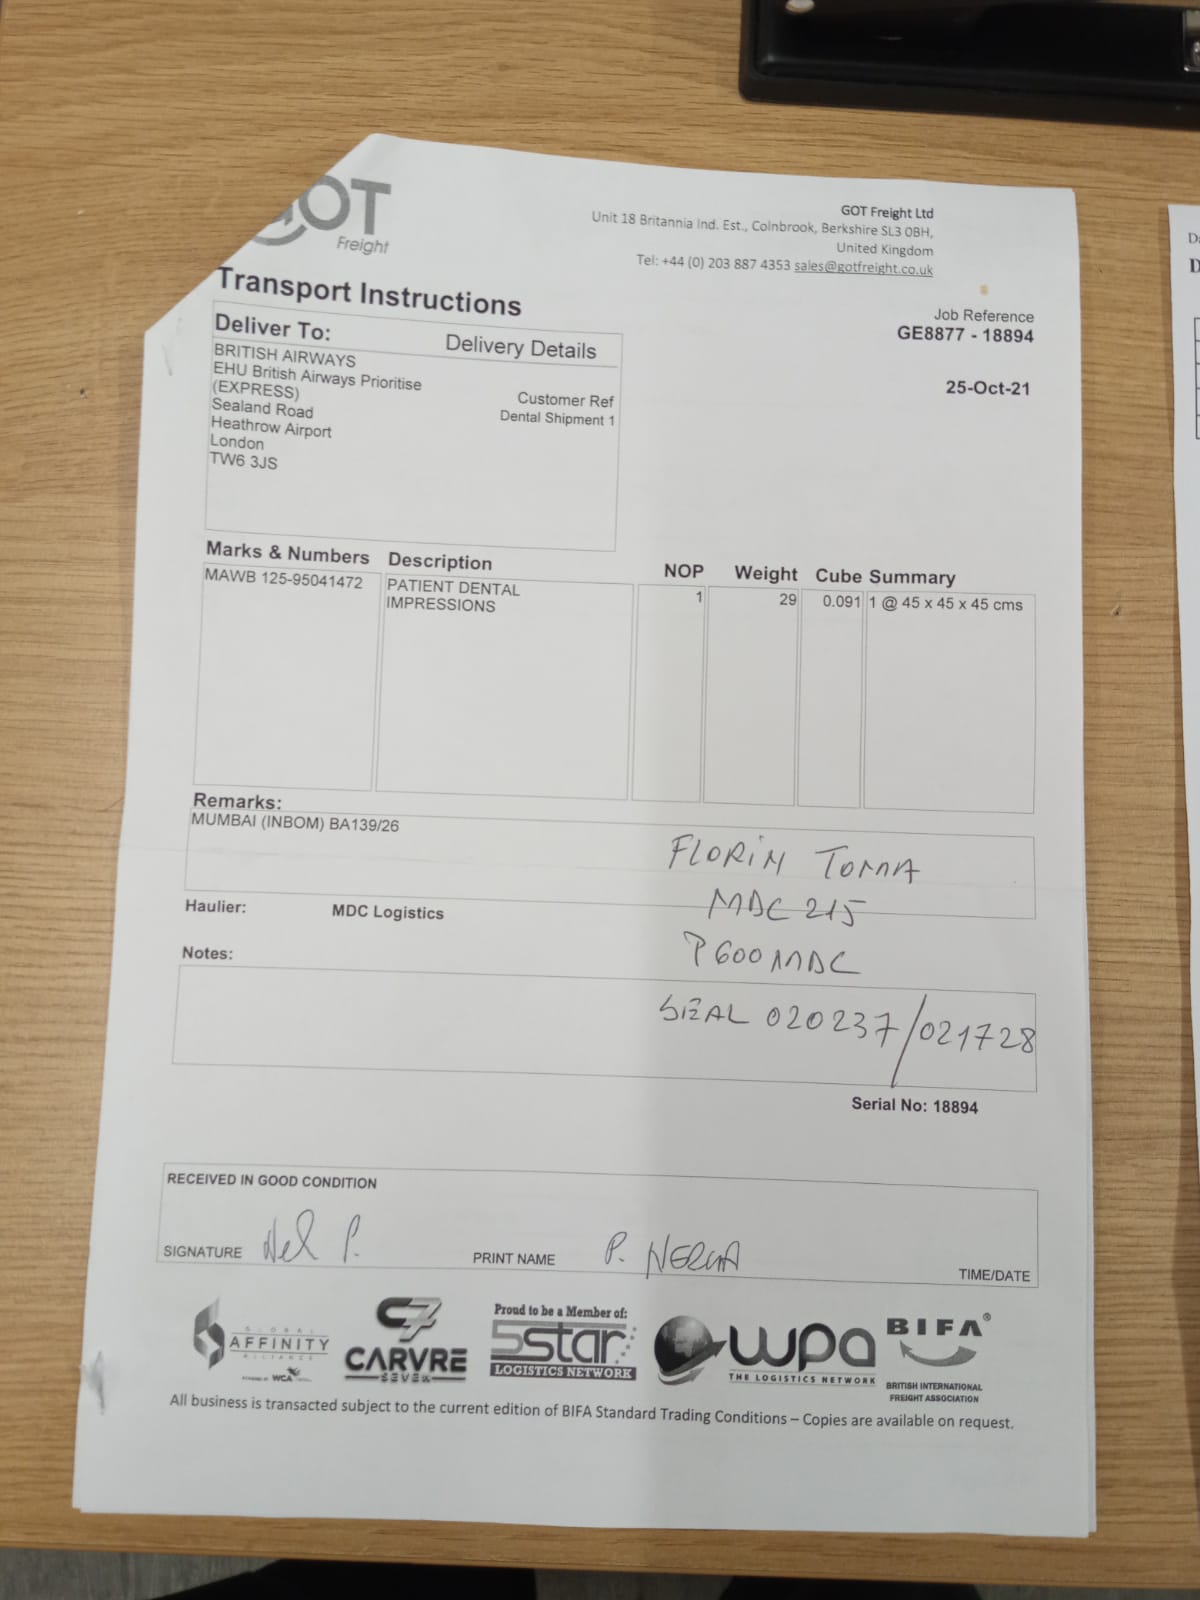 GOT
Freight
GOT Freight Ltd
Unit 18 Britannia Ind. Est., Colnbrook, Berkshire SL3 0BH,
United Kingdom
Tel: +44 (0) 203 887 4353 sales@gotfreight.co.uk
Transport Instructions
Job Reference
GE8877 - 18894
25-Oct-21
Deliver To:
Delivery Details
BRITISH AIRWAYS
EHU British Airways Prioritise
(EXPRESS)
Sealand Road
Heathrow Airport
London
TW6 3JS
Customer Ref
Dental Shipment 1
Marks & Numbers Description NOP Weight Cube Summary
MAWB 125-95041472 PATIENT DENTAL 1 29 0.091 1 @ 45 x 45 x 45 cms
IMPRESSIONS
Remarks:
MUMBAI (INBOM) BA139/26
FLORIN TOMA
MDC 215
Haulier: MDC Logistics
P600MDC
Notes:
SEAL 020237/021728
Serial No: 18894
RECEIVED IN GOOD CONDITION
SIGNATURE PRINT NAME P. TIME/DATE
GLOBAL
AFFINITY
ALLIANCE
WCA
C7
CARVRE
SEVEN
Proud to be a Member of:
5star
LOGISTICS NETWORK
wpa
THE LOGISTICS NETWORK
BIFA®
BRITISH INTERNATIONAL
FREIGHT ASSOCIATION
All business is transacted subject to the current edition of BIFA Standard Trading Conditions – Copies are available on request.